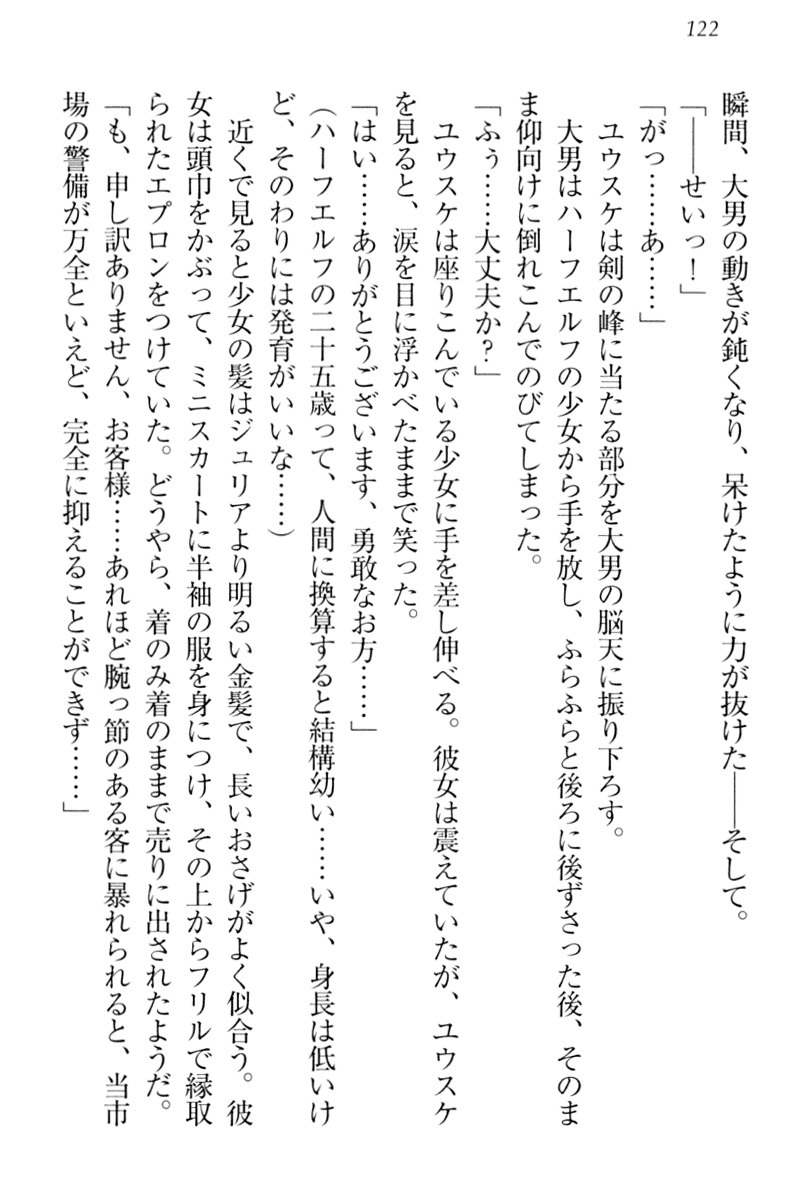 122
瞬間、大男の動きが鈍くなり、呆けたように力が抜けた――そして。
「――せいっ！」
「がっ……あ……」
ユウスケは剣の峰に当たる部分を大男の脳天に振り下ろす。
大男はハーフエルフの少女から手を放し、ふらふらと後ろに後ずさった後、そのま
ま仰向けに倒れこんでのびてしまった。
「ふぅ……大丈夫か？」
ユウスケは座りこんでいる少女に手を差し伸べる。彼女は震えていたが、ユウスケ
を見ると、涙を目に浮かべたままで笑った。
「はい……ありがとうございます、勇敢なお方……」
（ハーフエルフの二十五歳って、人間に換算すると結構幼い……いや、身長は低いけ
ど、そのわりには発育がいいな……）
近くで見ると少女の髪はジュリアより明るい金髪で、長いおさげがよく似合う。彼
女は頭巾をかぶって、ミニスカートに半袖の服を身につけ、その上からフリルで縁取
られたエプロンをつけていた。どうやら、着のみ着のままで売りに出されたようだ。
「も、申し訳ありません、お客様……あれほど腕っ節のある客に暴れられると、当市
場の警備が万全といえど、完全に抑えることができず……」